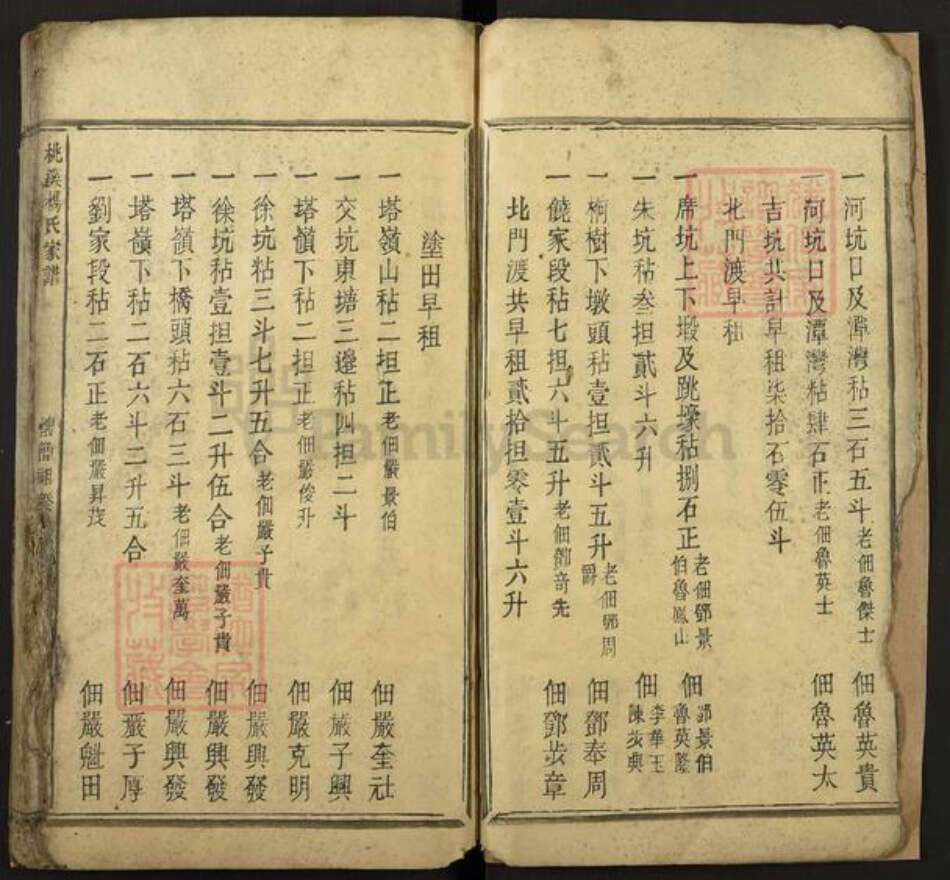 一河坑口及潭灣秥三石五斗老佃魯傑士 佃魯英貴
一河坑口及潭灣秥肆石正老佃魯英士 佃魯英太
吉坑共計早租柒拾石零伍斗
北門渡早租
一席坑上下塅及跳壕秥捌石正老佃鄧景伯魯鳳山 佃鄧景伯魯英隆
一朱坑秥叁担貳斗六升 佃李華玉陳步典
一桐樹下墩頭秥壹担貳斗五升老佃鄧周爵 佃鄧奉周
一饒家段秥七担六斗五升老佃鄧奇先 佃鄧步章
北門渡共早租貳拾担零壹斗六升
塗田早租
一塔嶺山秥二担正老佃嚴景伯 佃嚴奎社
一交坑東塘三邊秥四担二斗 佃嚴子興
一塔嶺下秥二担正老佃嚴俊升 佃嚴克明
一徐坑秥三斗七升五合老佃嚴子貴 佃嚴興發
一徐坑秥壹担壹斗二升伍合老佃嚴子貴 佃嚴興發
一塔嶺下橋頭秥六石三斗老佃嚴奎萬 佃嚴興發
一塔嶺下秥二石六斗二升五合 佃嚴子厚
一劉家段秥二石正老佃嚴昇茂 佃嚴魁田
桃溪楊氏家譜
FamilySearch